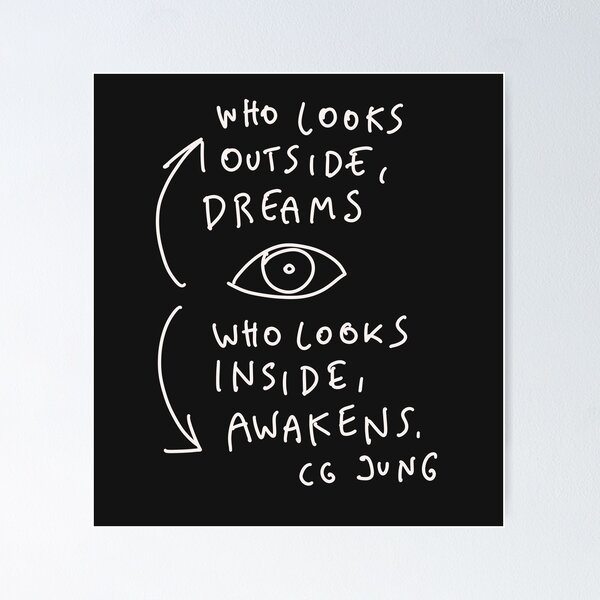 WHO LOOKS
OUTSIDE,
DREAMS
WHO LOOKS
INSIDE,
AWAKENS.
CG JUNG